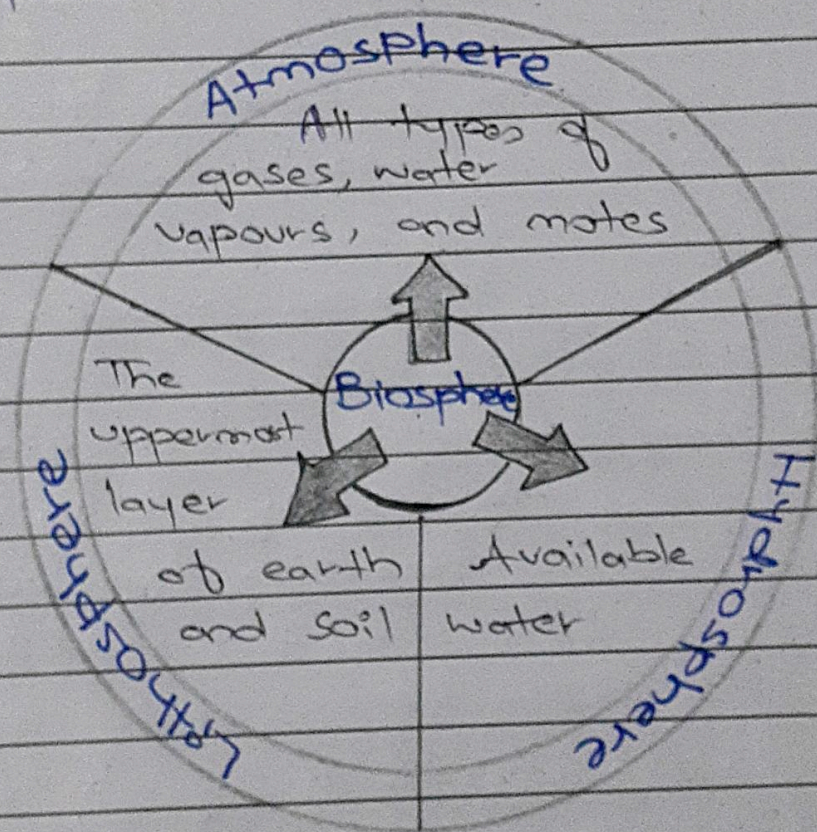 Atmosphere
All types of
gases, water
vapours, and motes
Biosphee
The
uppermost
layer
of earth
and soil
Available
water
Lithosphere
Hydrosphere